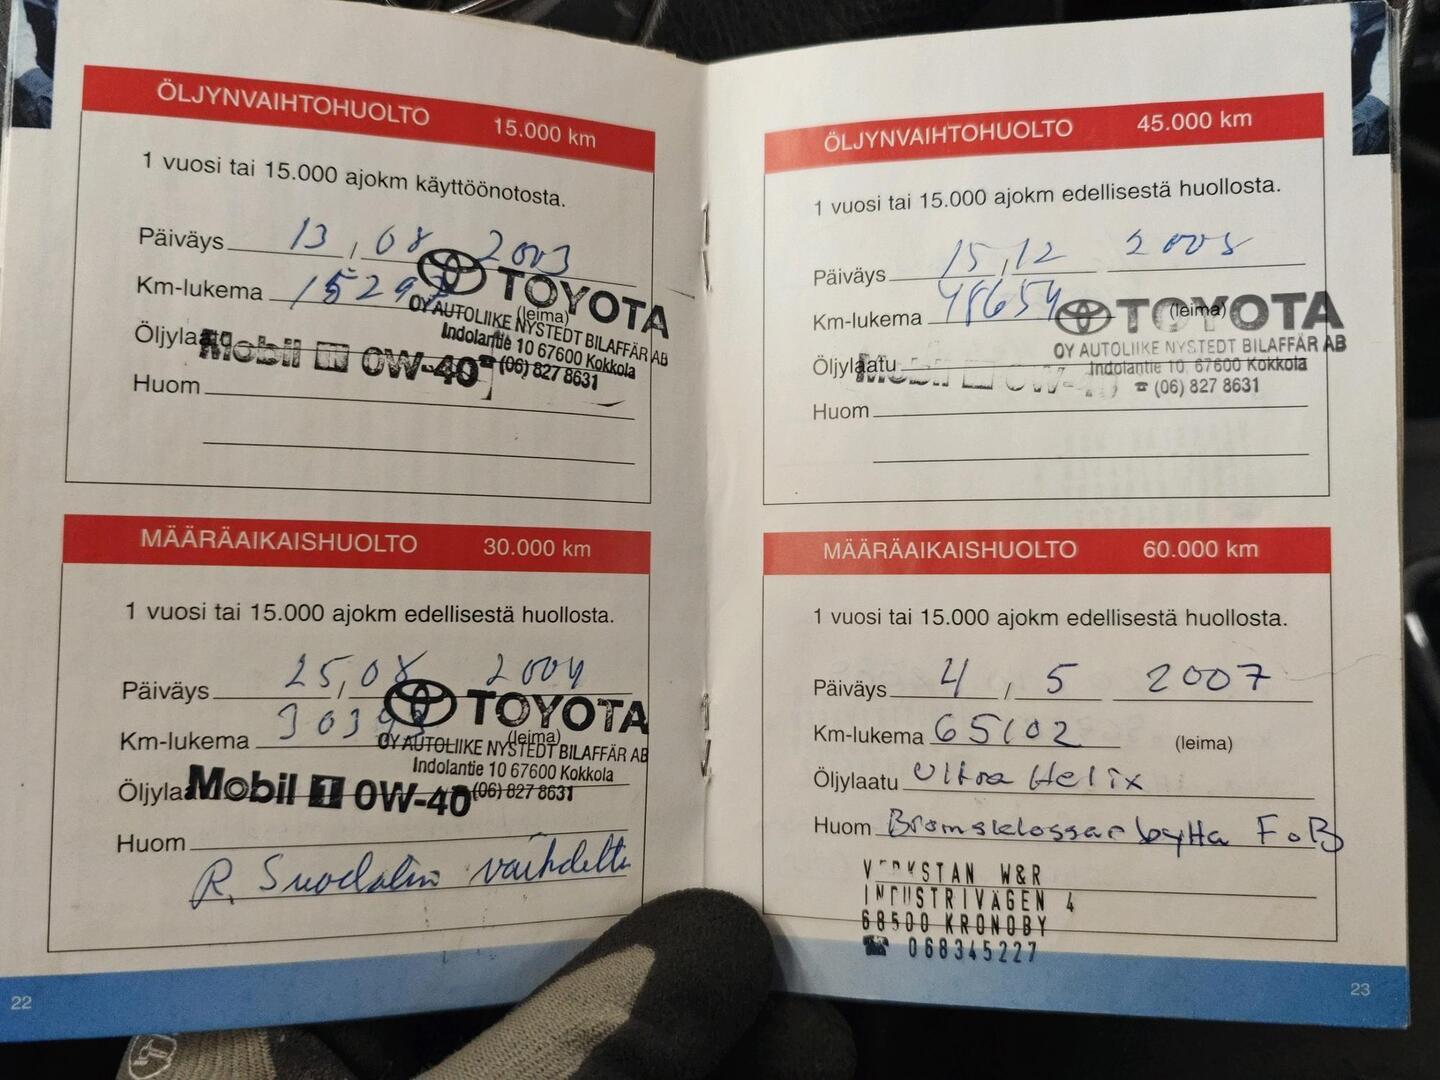 ÖLJYNVAIHTOHUOLTO 15.000 km
1 vuosi tai 15.000 ajokm käyttöönotosta.
Päiväys 13, 08 2003
Km-lukema
TOYOTA
(leima)
OY AUTOLIIKE NYSTEDT BILAFFÄR AB
Indolantie 10 67600 Kokkola
(06) 827 8631
Öljylaatu
Mobil 1 0W-40
Huom
MÄÄRÄAIKAISHUOLTO 30.000 km
1 vuosi tai 15.000 ajokm edellisestä huollosta.
Päiväys 25, / 08 2004
Km-lukema
TOYOTA
(leima)
OY AUTOLIIKE NYSTEDT BILAFFÄR AB
Indolantie 10 67600 Kokkola
(06) 827 8631
Öljyla
Mobil 1 0W-40
Huom
R. vaihdettu
22
ÖLJYNVAIHTOHUOLTO 45.000 km
1 vuosi tai 15.000 ajokm edellisestä huollosta.
Päiväys 15, / 12 2005
Km-lukema 48654
TOYOTA
(leima)
OY AUTOLIIKE NYSTEDT BILAFFÄR AB
Indolantie 10, 67600 Kokkola
☎ (06) 827 8631
Öljylaatu Mobil 1 0W-40
Huom
MÄÄRÄAIKAISHUOLTO 60.000 km
1 vuosi tai 15.000 ajokm edellisestä huollosta.
Päiväys 4 / 5 2007
Km-lukema 65102
(leima)
Öljylaatu Ultra Helix
Huom Bromsklossar bytta F o B
VERKSTAN W&R
INDUSTRIVÄGEN 4
68500 KRONOBY
☎ 068345227
23